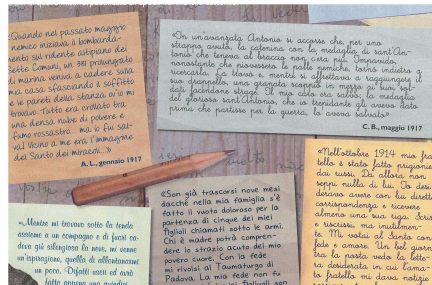 «Quando nel passato maggio
nemico iniziava il bombarda-
mento sul ridente altipiano dei
Sette Comuni, un 381 prolungato
di marina veniva a cadere sulla
mia casa sfasciando il soffitto
e le pareti della stanza ov'io mi
trovavo. Tutto era crollato tra
una densa nube di polvere e
fumo rossastro... ma io fui sal-
va! Vicino a me era l'immagine
del Santo dei miracoli...»
A. L., gennaio 1917
«In un'avanzata Antonio si accorse che, per uno
strappo avuto, la catenina con la medaglia di sant'An-
tonio che teneva al braccio non c'era più. Impavido,
nonostante che piovessero le palle nemiche, tornò indietro a
ricercarla. La trovò e, mentre si affrettava a raggiungere il
suo drappello, una granata scoppiò in mezzo ai suoi sol-
dati facendone strage. Il mio caro era salvo; la medaglia
del glorioso sant'Antonio, che io trepidante gli avevo dato
prima che partisse per la guerra, lo aveva salvato»
C. B., maggio 1917
«Mentre mi trovavo sotto la tenda
assieme a un compagno e di fuori ca-
deva già silenziosa la neve, mi venne
un'ispirazione, quella di allontanarmi
un poco. Difatti uscii ed avrò
fatto appena una quindici
«Son già trascorsi nove mesi
dacché nella mia famiglia s'è
fatto il vuoto doloroso per la
partenza di cinque dei miei
figlioli chiamati sotto le armi.
Chi è madre potrà compren-
dere lo strazio acuto del mio
povero cuore. Con la fede
mi rivolsi al Taumaturgo di
Padova. La mia fede non fu
figlioli son
«Nell'ottobre 1914 mio fra-
tello è stato fatto prigionie
dai russi. Da allora non
seppi nulla di lui. Io desi
deravo avere con lui diretta
corrispondenza e ricevere
almeno una sua riga. Scris
e riscrissi, ma inutilmen-
te. Mi votai al Santo con
fede e amore. Un bel giorn
tra la posta vedo la lette-
ra desiderata in cui l'ama-
to fratello mi dava notizie